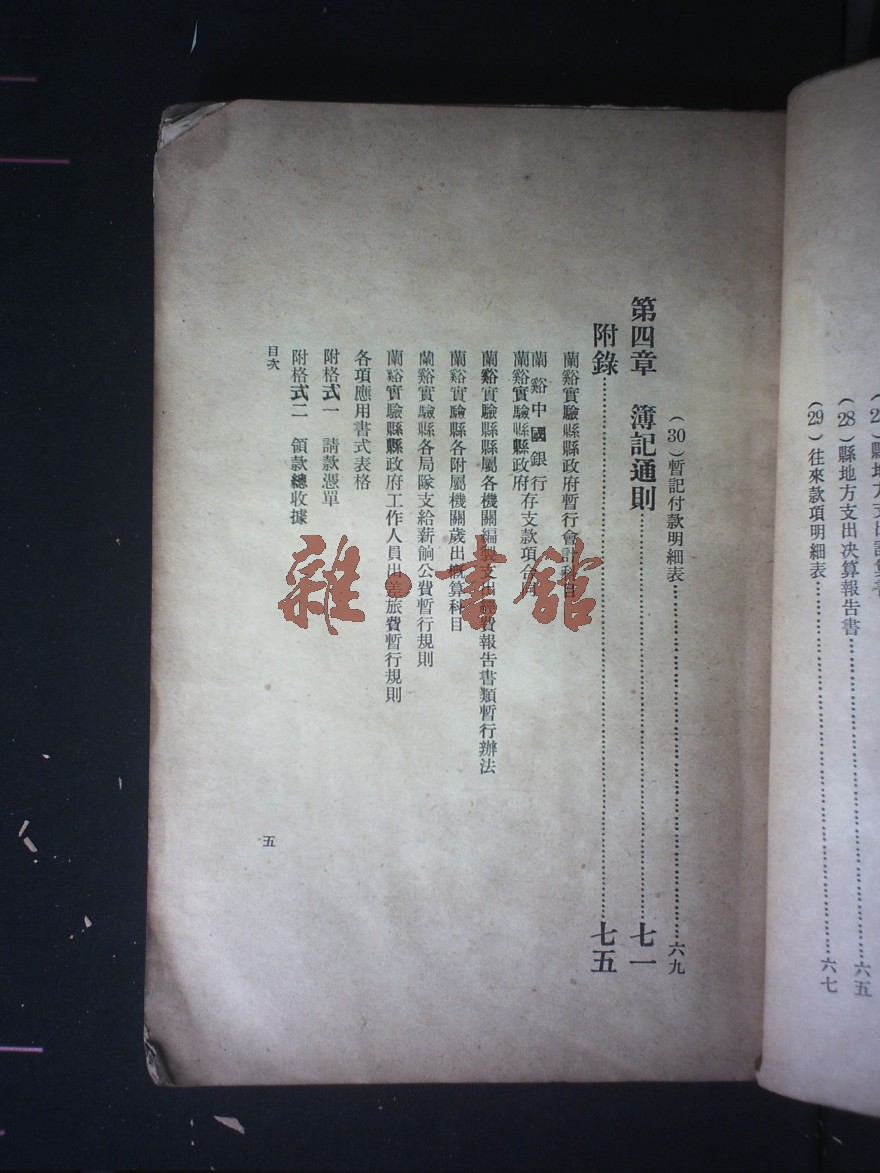 (28)縣地方支出決算報告書……六五
(29)往來款項明細表……六七
(30)暫記付款明細表……六九
第四章 簿記通則……七一
附錄……七五
蘭谿實驗縣縣政府暫行會計科目
蘭谿中國銀行
蘭谿實驗縣縣政府存支款項合同
蘭谿實驗縣縣屬各機關編製支出經費報告書類暫行辦法
蘭谿實驗縣各附屬機關歲出概算科目
蘭谿實驗縣各局隊支給薪餉公費暫行規則
蘭谿實驗縣縣政府工作人員出差旅費暫行規則
各項應用書式表格
附格式一 請款憑單
附格式二 領款總收據
目次
五
雜·書館